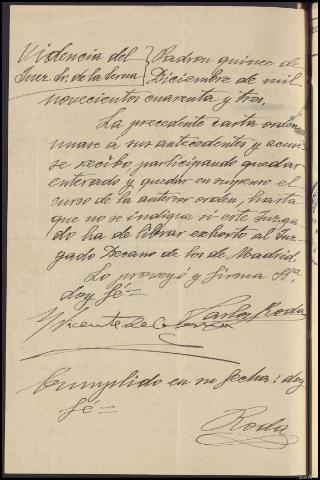 Videncia del } Padron quince de
Juez Sr. de la Serna } Diciembre de mil
novecientos cuarenta y tres.
La precedente carta orden
unase a sus antecedentes y acuse
se recibo participando quedar
enterado y quedar en suspenso el
curso de la anterior orden, hasta
que no se indique si este Juzga
do ha de librar exhorto al Juz
gado Decano de los de Madrid.
Lo proveyó y firma Sª,
doy fé=
Vicente de la Serna Carlos Roda
Cumplido en su fecha: doy
fé=
Roda